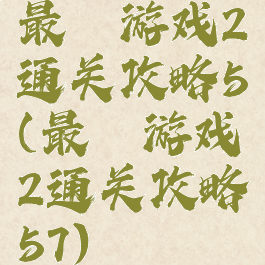 最 游戏2
通关攻略5
(最 游戏
2通关攻略
57)